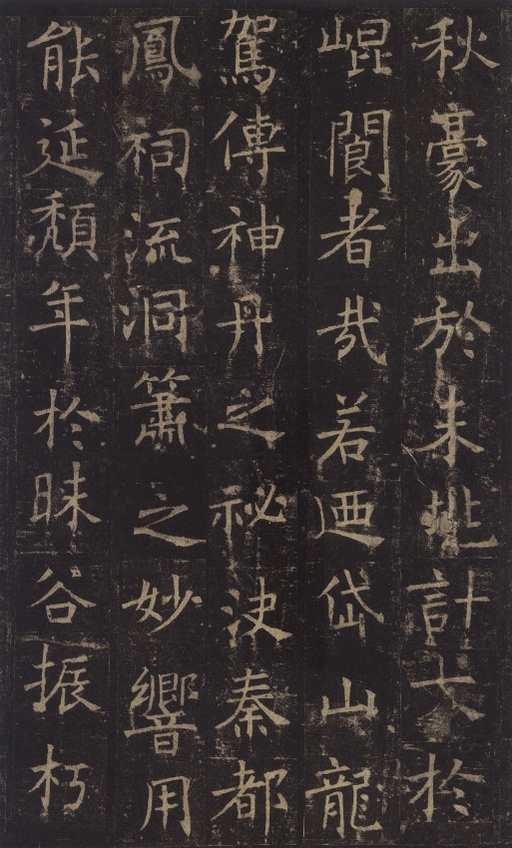 秋豪出於未兆計大於
崐閬者哉若迺岱山龍
駕傳神丹之祕决秦都
鳳祠流洞簫之妙響用
能延頹年於昧谷振朽